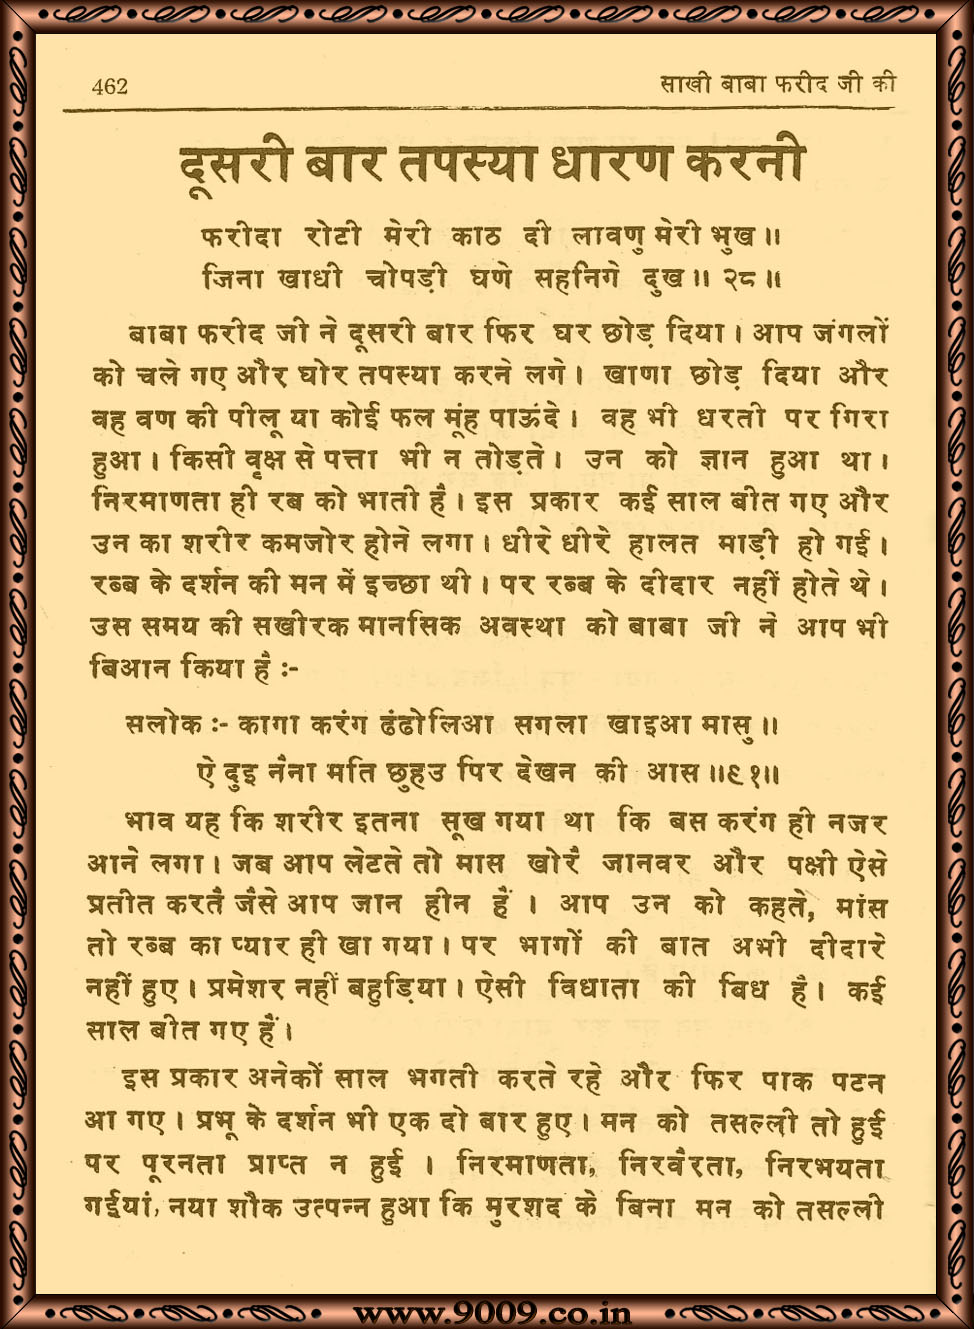 462
साखी बाबा फरीद जी की
दूसरी बार तपस्या धारण करनी
फरीदा रोटी मेरी काठ दी लावणु मेरी भुख॥
जिना खाधी चोपड़ी घणे सहनिगे दुख॥ २८॥
बाबा फरीद जी ने दूसरी बार फिर घर छोड़ दिया। आप जंगलों
को चले गए और घोर तपस्या करने लगे। खाणा छोड़ दिया और
वह वण की पीलू या कोई फल मूंह पाऊंदे। वह भी धरती पर गिरा
हुआ। किसी वृक्ष से पत्ता भी न तोड़ते। उन को ज्ञान हुआ था।
निरमाणता ही रब को भाती है। इस प्रकार कई साल बीत गए और
उन का शरीर कमजोर होने लगा। धीरे धीरे हालत माड़ी हो गई।
रब्ब के दर्शन की मन में इच्छा थी। पर रब्ब के दीदार नहीं होते थे।
उस समय की सखीरक मानसिक अवस्था को बाबा जी ने आप भी
बिआन किया है :-
सलोक :- कागा करंग ढंढोलिआ सगला खाइआ मासु॥
ऐ दुइ नैना मति छुहउ पिर देखन की आस॥९१॥
भाव यह कि शरीर इतना सूख गया था कि बस करंग ही नजर
आने लगा। जब आप लेटते तो मास खोरै जानवर और पक्षी ऐसे
प्रतीत करतै जैसे आप जान हीन हैं। आप उन को कहते, मांस
तो रब्ब का प्यार ही खा गया। पर भागों की बात अभी दीदारे
नहीं हुए। प्रमेशर नहीं बहुड़िया। ऐसी विधाता की बिध है। कई
साल बीत गए हैं।
इस प्रकार अनेकों साल भगती करते रहे और फिर पाक पटन
आ गए। प्रभू के दर्शन भी एक दो बार हुए। मन को तसल्ली तो हुई
पर पूरनता प्राप्त न हुई। निरमाणता, निरवैरता, निरभयता
गईयां, नया शौक उत्पन्न हुआ कि मुरशद के बिना मन को तसल्ली
www.9009.co.in